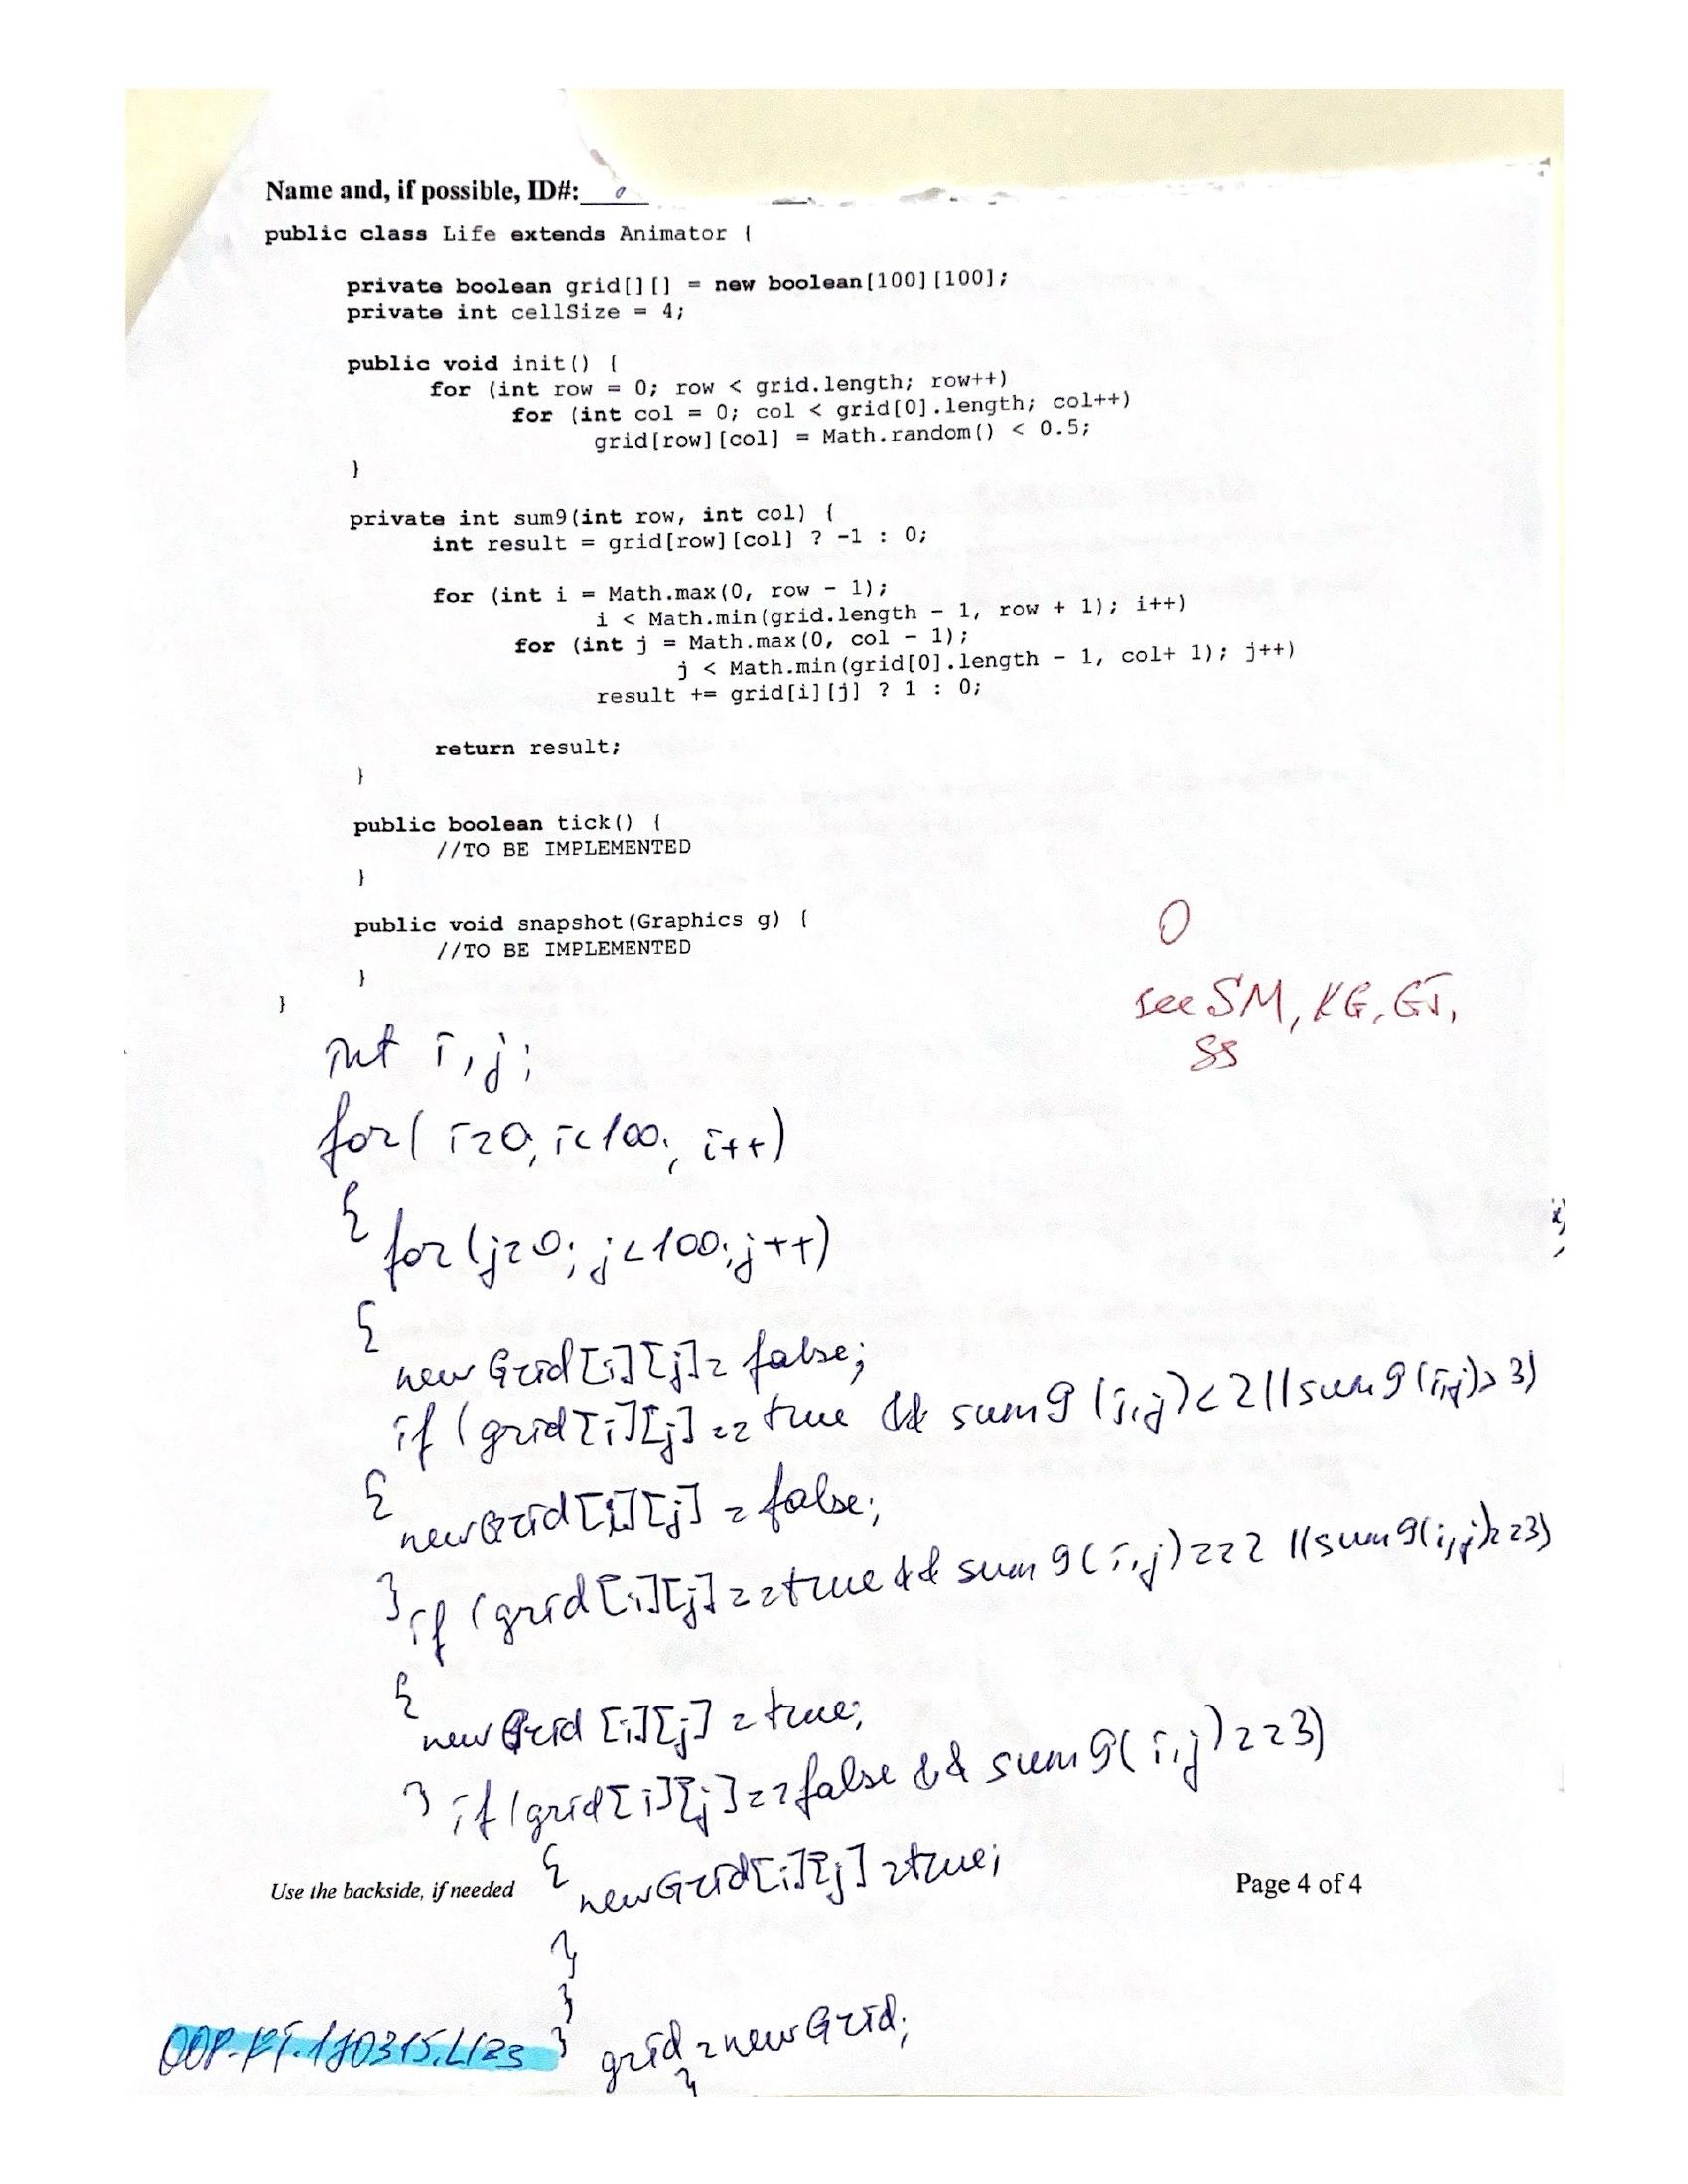 Name and, if possible, ID#:
public class Life extends Animator {
private boolean grid[][] = new boolean[100][100];
private int cellSize = 4;
public void init() {
for (int row = 0; row < grid.length; row++)
for (int col = 0; col < grid[0].length; col++)
grid[row][col] = Math.random() < 0.5;
}
private int sum9(int row, int col) {
int result = grid[row][col] ? -1 : 0;
for (int i = Math.max(0, row - 1);
i < Math.min(grid.length - 1, row + 1); i++)
for (int j = Math.max(0, col - 1);
j < Math.min(grid[0].length - 1, col+ 1); j++)
result += grid[i][j] ? 1 : 0;
return result;
}
public boolean tick() {
//TO BE IMPLEMENTED
}
public void snapshot(Graphics g) {
//TO BE IMPLEMENTED
}
}
0
see SM, KG, GJ,
SS
int i,j;
for( i=0; i<100; i++)
{
for(j=0; j<100; j++)
{
newGrid[i][j]= false;
if (grid[i][j]==true && sum9(i,j)<2||sum9(i,j)>3)
{
newGrid[i][j] = false;
}if (grid[i][j]==true && sum9(i,j)==2 ||sum9(i,j)==3)
{
newGrid [i][j] = true;
} if(grid[i][j]==false && sum9(i,j)==3)
{
newGrid[i][j] =true;
Use the backside, if needed
Page 4 of 4
}
}
} grid=newGrid;
}